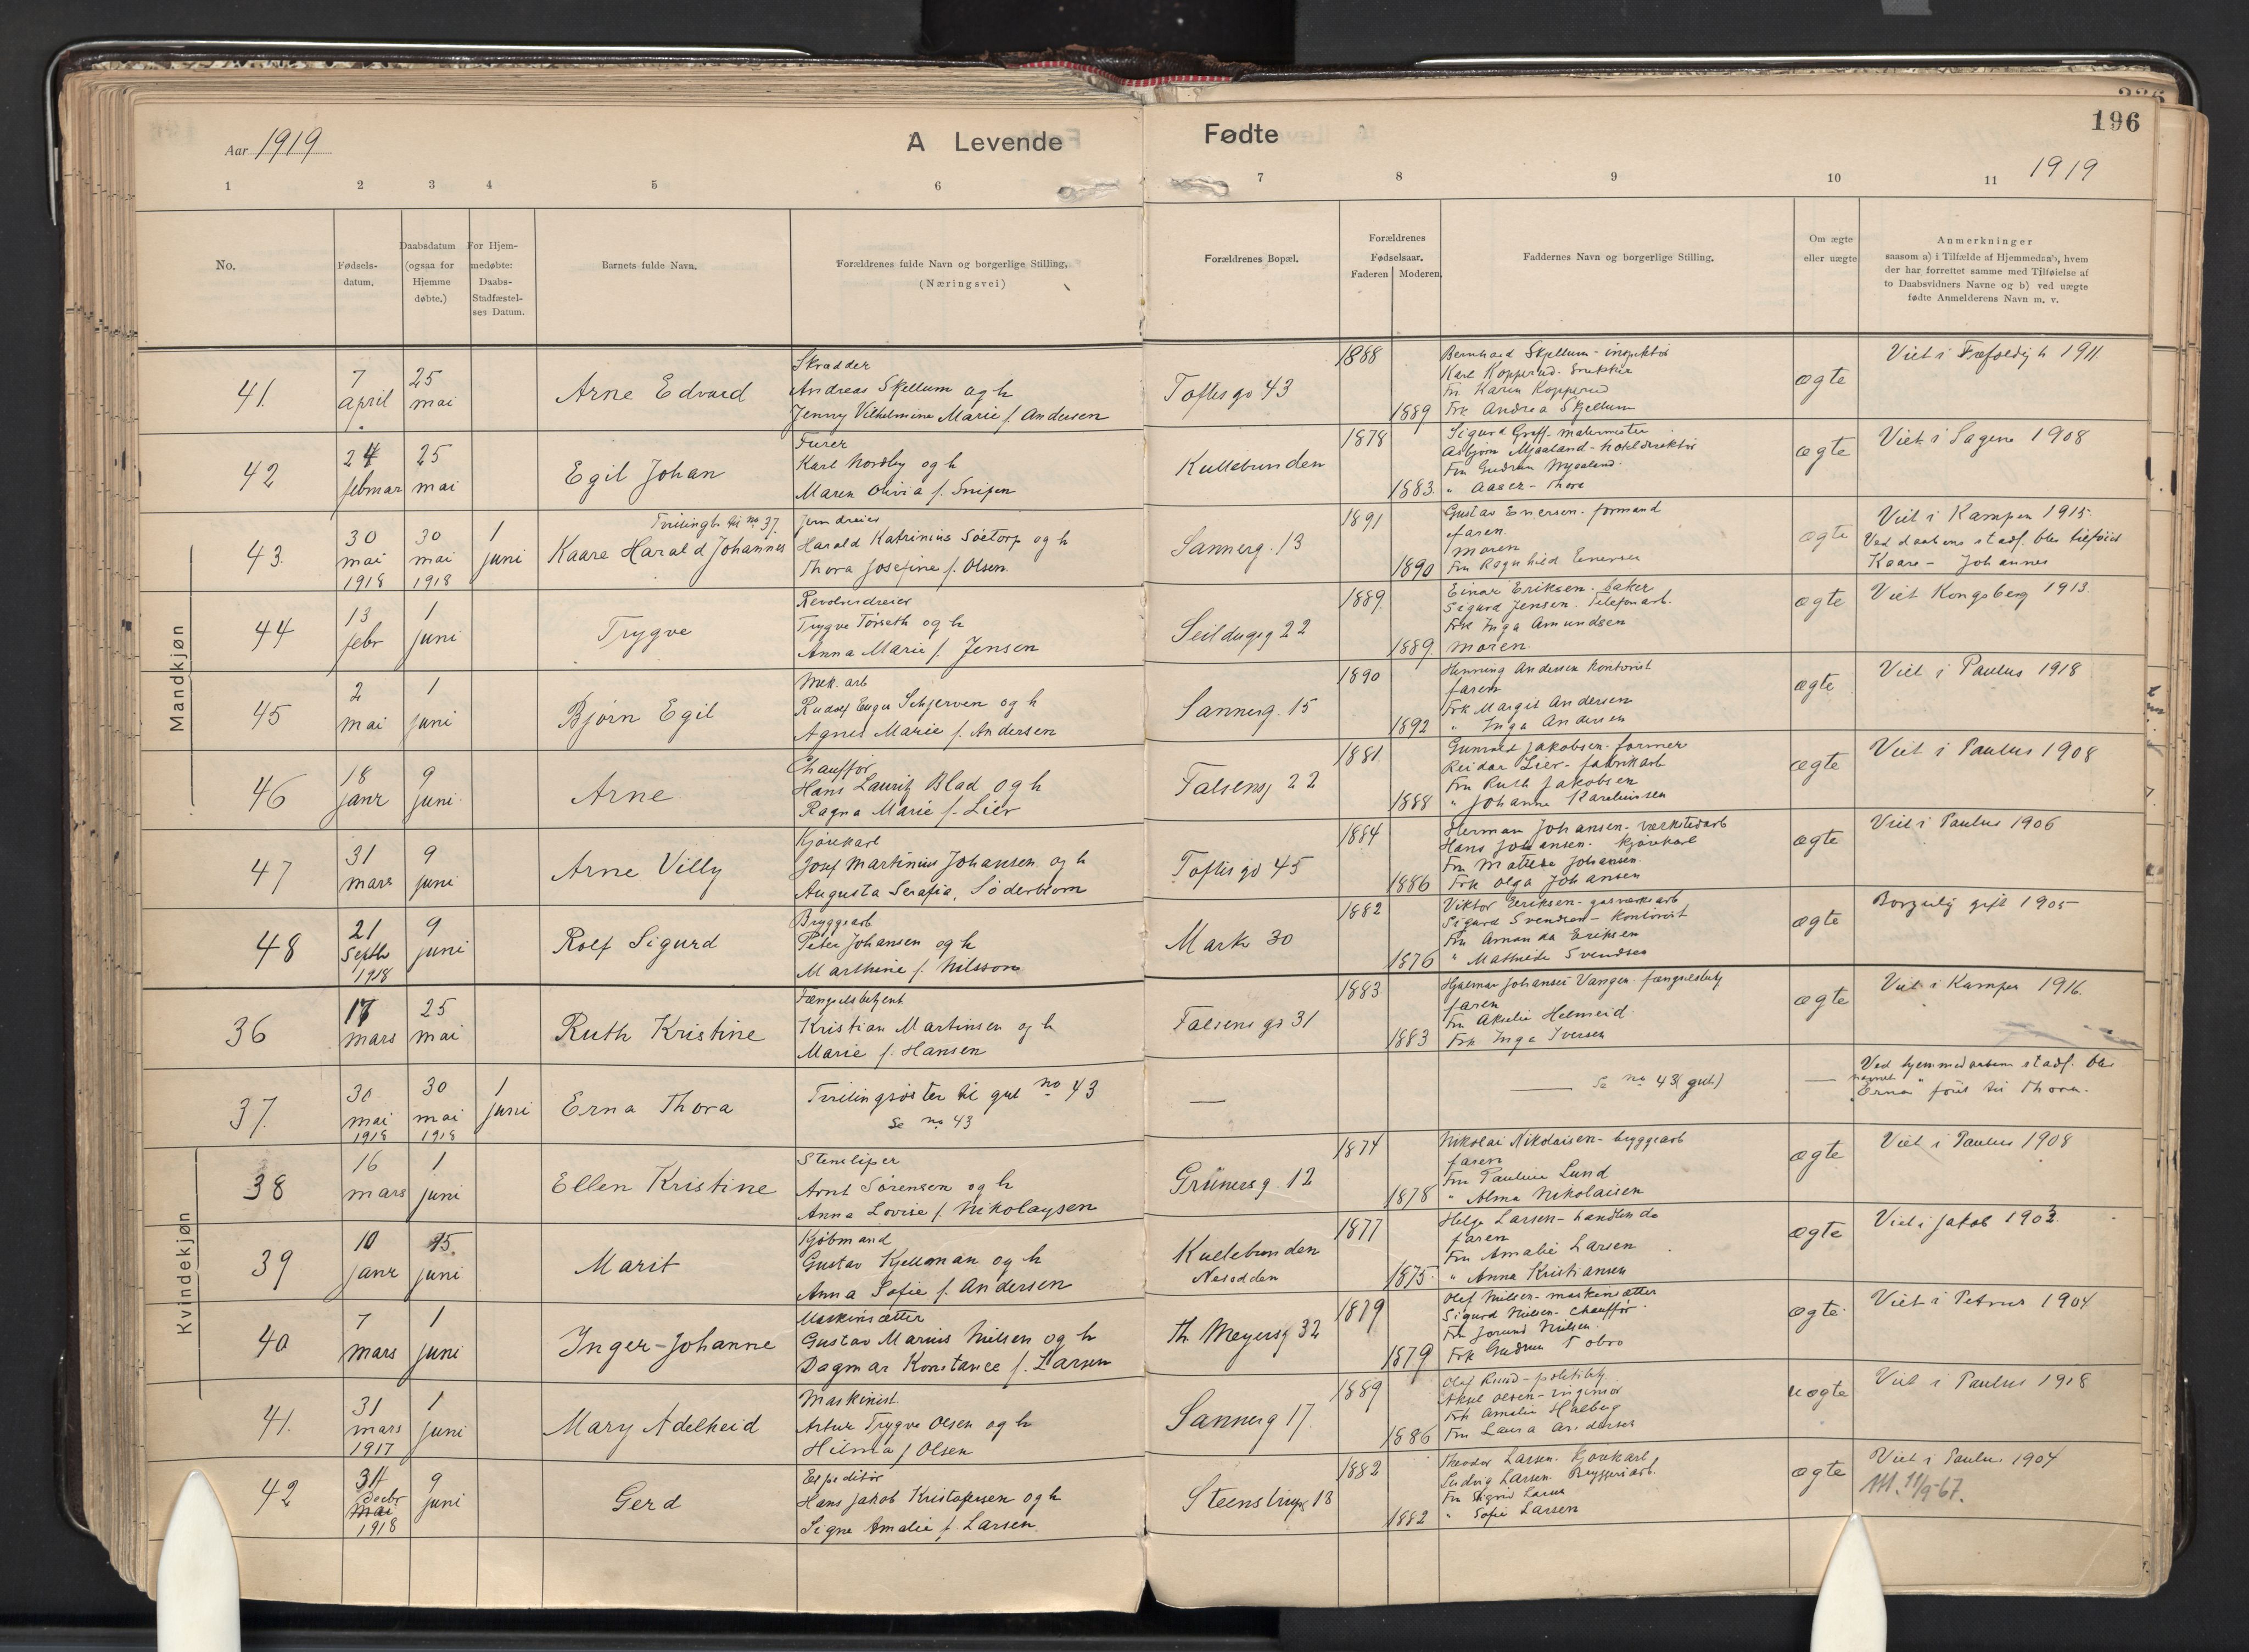 Aar 1919
A Levende
Fødte
196
1919
1 2 3 4 5 6 7 8 9 10 11
No.
Fødsels-
datum.
Daabsdatum
(ogsaa for
Hjemme
døbte.)
For Hjem-
medøbte:
Daabs-
Stadfæstel-
ses Datum.
Barnets fulde Navn.
Forældrenes fulde Navn og borgerlige Stilling.
(Næringsvei)
Forældrenes Bopæl.
Forældrenes
Fødselsaar.
Faderen Moderen.
Faddernes Navn og borgerlige Stilling.
Om ægte
eller uægte
Anmerkninger
saasom a) i Tilfælde af Hjemmedaab, hvem
der har forrettet samme med Tilføielse af
to Daabsvidners Navne og b) ved uægte
fødte Anmelderens Navn m. v.
Mandkjøn
41.
7
april
25
mai
Arne Edvard
Skrædder
Andreas Skjellum og h
Jenny Vilhelmine Marie f. Andersen
Toftes gd 43
1888
1889
Bernhard Skjellum - inspektør
Karl Kopperud - Snekker
Fru Karen Kopperud
Frk Andrea Skjellum
ægte
Viet i 1911
42
24
februar
25
mai
Egil Johan
Furer
Karl Nordby og h
Maren Olivia f. Snipen
Kullebunden
1878
1883.
Sigurd Greff - malermester
Asbjørn Mjaaland - hoteldirektør
Fru Gudrun Mjaaland
" Aaser - Thore
ægte
Viet i Sagene 1908
43.
30
mai
1918
30
mai
1918
1
juni
Tvilingb. til no 37.
Kaare Harald Johannes
Jerndreier
Harald Katrinius Söetorp og h
Thora Josefine f. Olsen.
Sannerg. 13
1891
1890
Gustav Enersen - formand
faren
moren
Fru Ragnhild Enersen
ægte
Viet i Kampen 1915.
Ved daabens stadf. blev tilføiet
Kaare - Johannes
44
13
febr
1
juni
Trygve
Revolverdreier
Trygve Tørseth og h
Anna Marie f. Jensen
Seildugsg 22
1889.
1889.
Einar Eriksen - baker
Sigurd Jensen. Telefonarb.
Frk Inga Amundsen
moren.
ægte
Viet Kongsberg 1913.
45
2
mai
1
juni
Bjørn Egil
Mek. arb
Rudolf Eugen Schjerven og h
Agnes Marie f. Andersen
Sannerg. 15
1890
1892
Henning Andersen kontorist
faren
Frk Margit Andersen
" Inga Andersen
ægte
Viet i Paulus 1918
46
18
janr
9
juni
Arne
Chauffør
Hans Lauritz Blad og h
Ragna Marie f. Lier
Falsensg 22
1881
1888
Gunvald Jakobsen - former
Reidar Lier - fabrikarb
Fru Ruth Jakobsen
" Johanne Karelinssen
ægte
Viet i Paulus 1908
47
31
mars
9
juni
Arne Villy
Kjørekarl
Josef Martinius Johansen og h
Augusta Serafia, Söderblom
Toftes gd 45
1884
1886
Herman Johansen - værkstedarb
Hans Johansen - kjørekarl
Fru Matilde Johansen.
Frk Olga Johansen
ægte
Viet i Paulus 1906
48
21
Septb
1918
9
juni
Rolf Sigurd
Bryggearb
Peter Johansen og h
Marthine f. Nilsson
Markv 30
1882
1876
Viktor Eriksen - gasværksarb
Sigurd Svendsen - kontorist
Fru Amanda Eriksen
" Mathilde Svendsen
ægte
Borgerlig gift 1905
36
17
mars
25
mai
Ruth Kristine
Fængselsbetjent
Kristian Martinsen og h
Marie f. Hansen
Falsens gd 31
1883.
1883
Hjalmar Johansen Vangen fængselsbetj
faren
Fru Akselie Helmeid
Frk Inga Iversen
ægte
Viet i Kampen 1916.
37.
30
mai
1918
30
mai
1918
1
juni
Erna Thora
Tvilingsøster til gut no 43
Se no 43
—
— Se no 43 (gut)
—
Ved hjemmedaabens stadf. blev
navnet
"Erna" føiet til Thora.
Kvindekjøn
38
16
mars
1
juni
Ellen Kristine
Stensliper
Arnt Sørensen og h
Anna Lovise f. Nikolaysen
Grünersg. 12
1874
1878
Nikolai Nikolaisen - bryggearb
faren
Fru Pauline Lund
" Alma Nikolaisen
ægte
Viet i Paulus 1908
39
10
janr
15
juni
Marit
Kjøbmand
Gustav Kjellman og h
Anna Sofie f. Andersen
Kullebunden
Nesodden
1877
1875.
Helge Larsen - handlende
faren
Fru Amalie Larsen
" Anna Kristiansen
ægte
Viet i Jakob 1902.
40
7
mars
1
juni
Inger-Johanne
Maskinsætter
Gustav Marius Nielsen og h
Dagmar Konstance f. Larsen
Th. Meyersg 32
1879
1879
Olaf Nielsen - maskinsætter
Sigurd Nielsen - Chauffør.
Fru Jorund Nielsen
Frk Gudrun Tobro
ægte
Viet i Petrus 1904
41.
31
mars
1917
1
juni
Mary Adelheid
Maskinist.
Artur Trygve Olsen og h
Hilma f Olsen
Sannerg 17.
1889
1886
Olaf Rund - politibetj
Aksel Olsen - ingeniør
Frk Amalie Halberg
Fru Laura Andersen
uægte
Viet i Paulus 1918
42
31
decbr
mai
1918
9
juni
Gerd
Expeditør
Hans Jakob Kristofersen og h
Signe Amalie f. Larsen.
Steenstrupsg 13
1882
1882
Theodor Larsen. Kjørekarl
Ludvig Larsen. Bryggeriarb.
Fru Sigrid Larsen
" Sofie Larsen
ægte
Viet i Paulus 1904
M. 11/9-67.